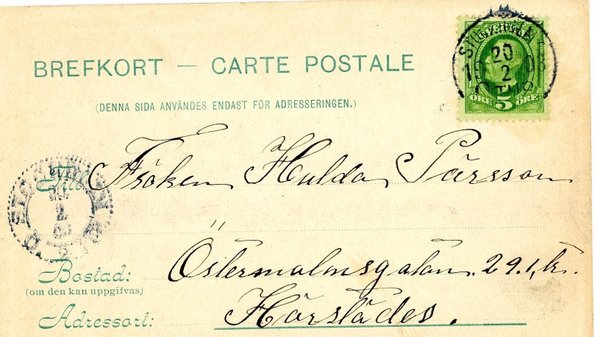 BREFKORT — CARTE POSTALE
(DENNA SIDA ANVÄNDES ENDAST FÖR ADRESSERINGEN.)
20
2
ÖRE 5 ÖRE
Till
Fröken Hulda Pärsson
Bostad: Östermalmsgatan 29.1.tr.
(om den kan uppgifvas)
Adressort: Härstädes.